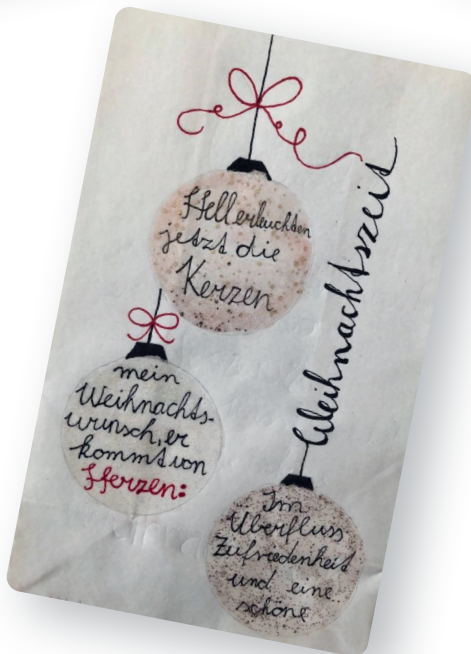 Hell erleuchten
jetzt die
Kerzen
mein
Weihnachts-
wunsch, er
kommt von
Herzen:
Im
Überfluss
Zufriedenheit
und eine
schöne
Weihnachtszeit